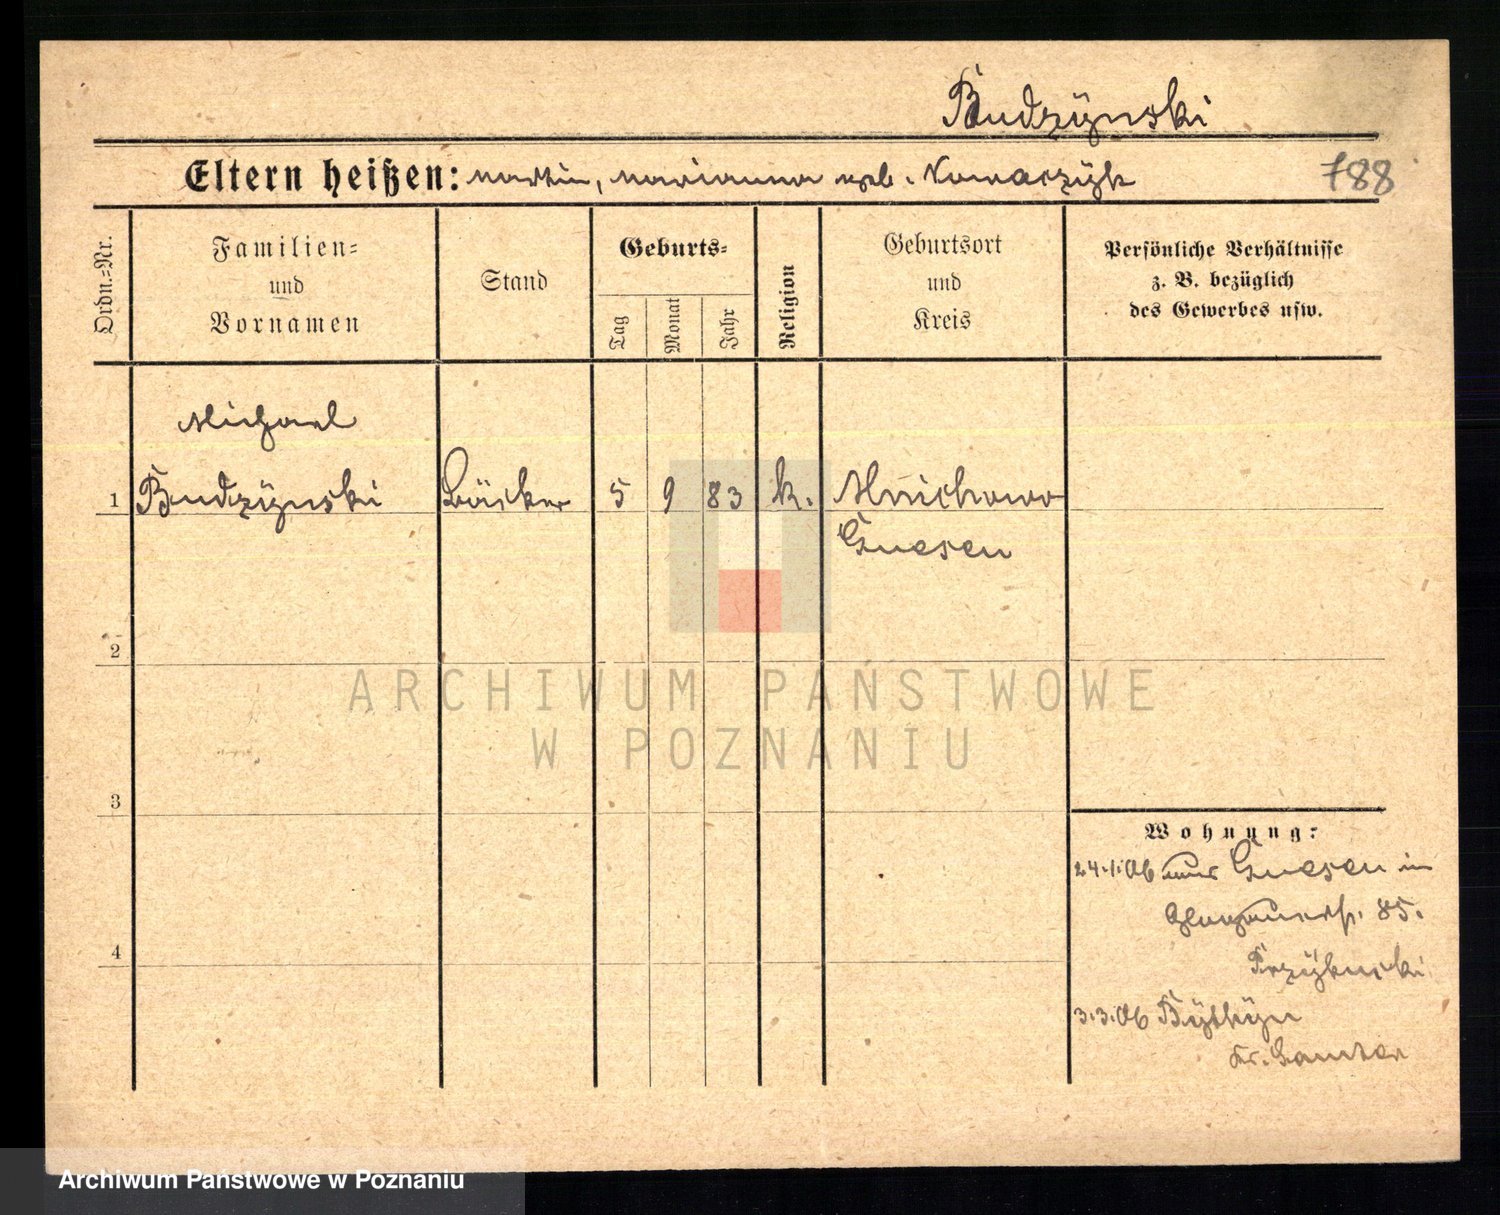 Budzÿnski
Eltern heißen: Martin, Marianna geb. Kowarzÿk
788
Ordn.=Nr.
Familien=
und
Vornamen
Stand
Geburts=
Tag
Monat
Jahr
Religion
Geburtsort
und
Kreis
Persönliche Verhältnisse
z. B. bezüglich
des Gewerbes usw.
Michael
1 Budzÿnski Bäcker 5 9 83 k. Mnichowo
Gnesen
2
ARCHIWUM PAŃSTWOWE
W POZNANIU
3
Wohnung:
24.1.06 aus Gnesen in
Glogauerstr. 85.
3.3.06 Bÿthÿn
Kr. Samter
4
Archiwum Państwowe w Poznaniu